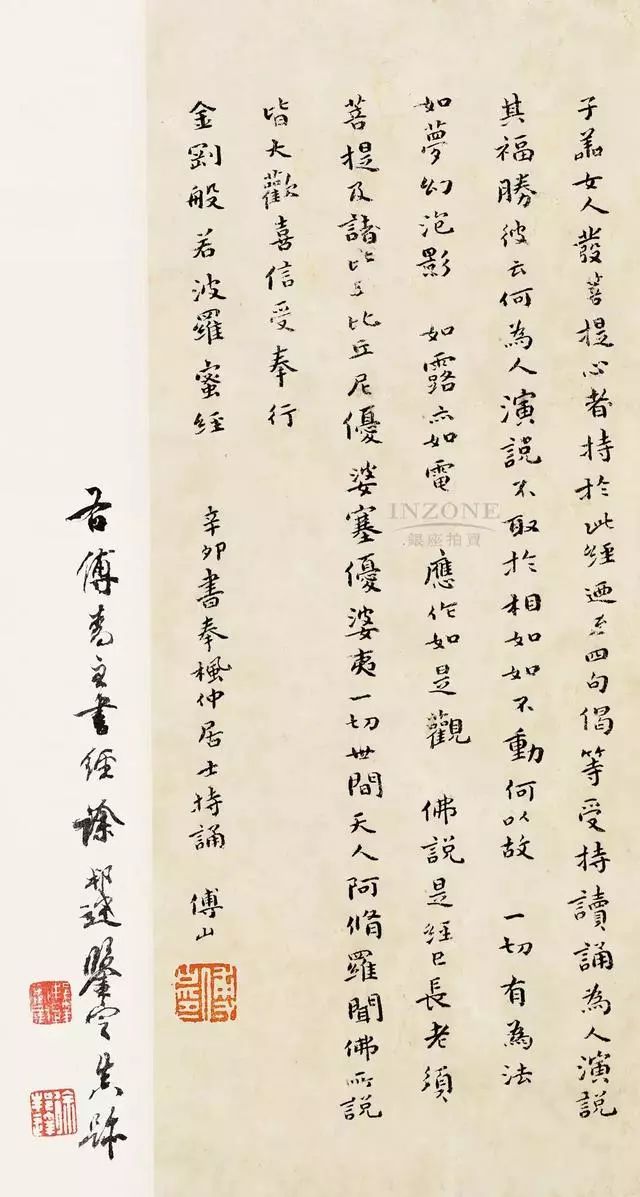 子善女人發菩提心者持於此經迺至四句偈等受持讀誦為人演説
其福勝彼云何為人演説不取於相如如不動何以故 一切有為法
如夢幻泡影 如露亦如電 應作如是觀 佛説是經已長老須
菩提及諸比丘比丘尼優婆塞優婆夷一切世間天人阿脩羅聞佛所説
皆大歡喜信受奉行
金剛般若波羅蜜經
辛卯書奉楓仲居士持誦 傅山
傅山印
傅青主書經 徐邦達鑒定真跡
INZONE
銀座拍賣